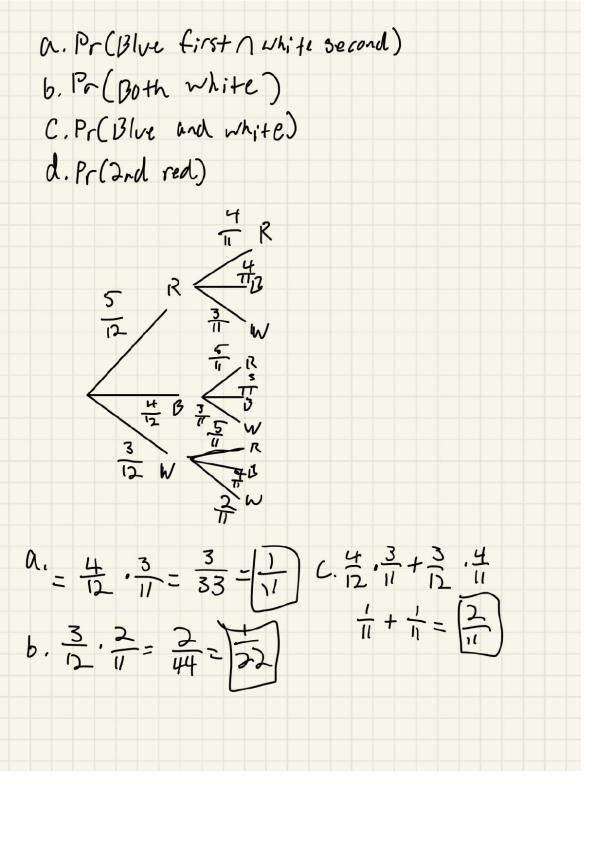 a. Pr(Blue first ∩ white second)
b. Pr(Both white)
C. Pr(Blue and white)
d. Pr(2nd red)
4/11 R
5/12 R 4/11 B
3/11 W
5/11 R
4/12 B 3/11 B
3/11 W
3/12 W 5/11 R
4/11 B
2/11 W
a. = 4/12 · 3/11 = 3/33 = 1/11
b. 3/12 · 2/11 = 2/44 = 1/22
C. 4/12 · 3/11 + 3/12 · 4/11
1/11 + 1/11 = 2/11